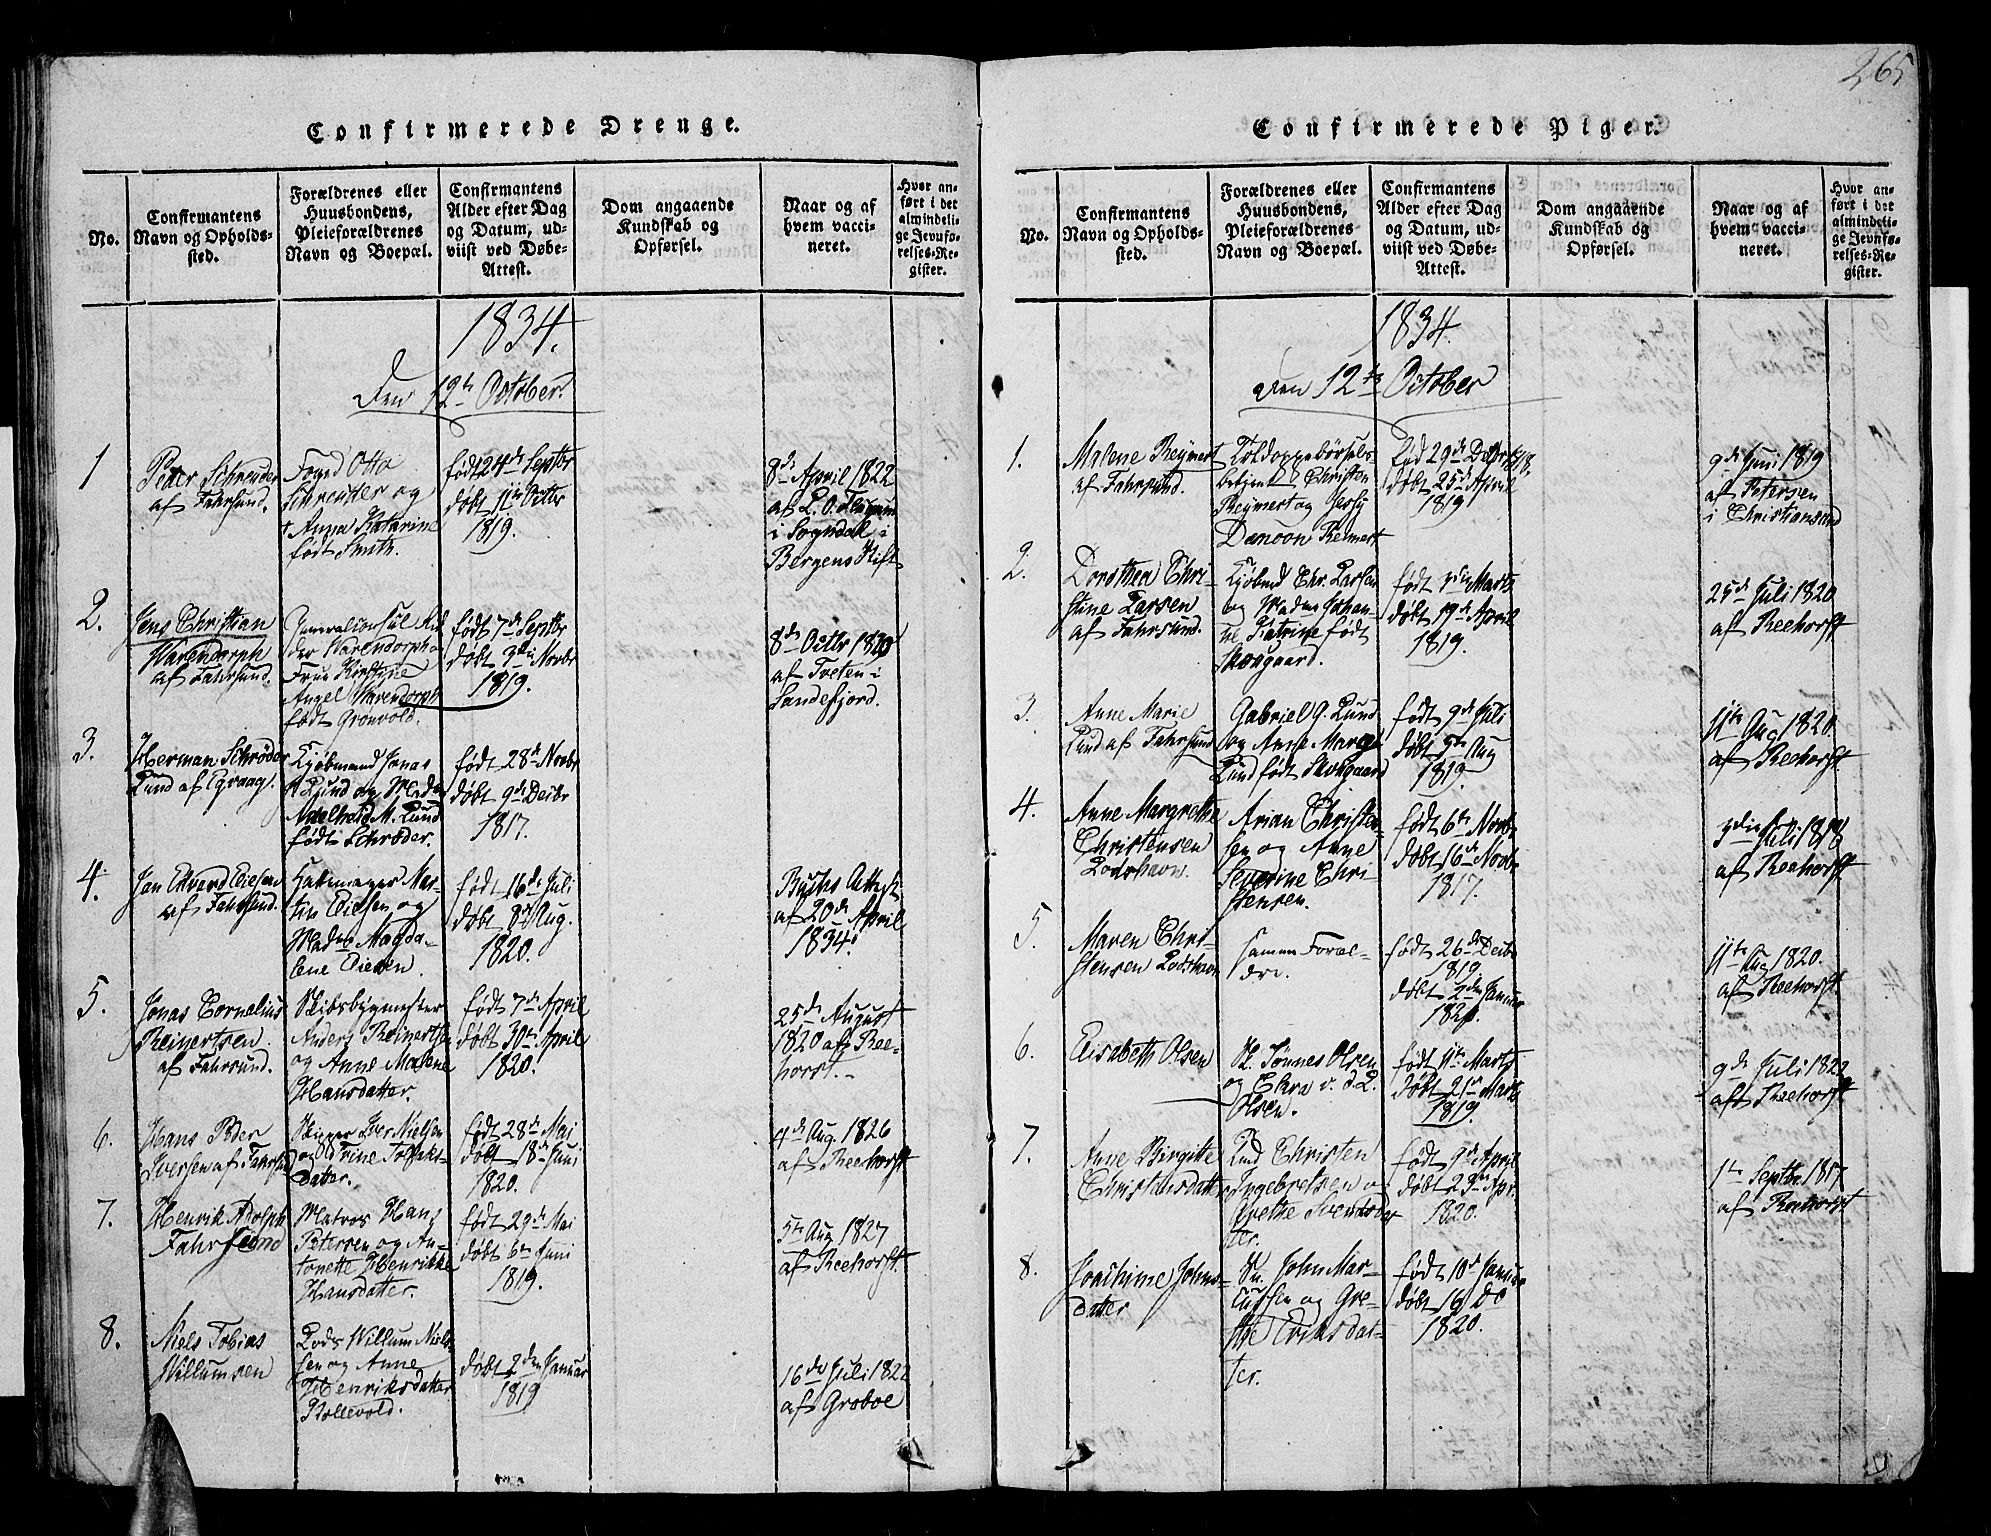 265
Confirmerede Drenge.
No.
Confirmantens
Navn og Opholds-
sted.
Forældrenes eller
Huusbondens,
Pleieforældrenes
Navn og Boepæl.
Confirmantens
Alder efter Dag
og Datum, ud-
viist ved Døbe-
Attest.
Dom angaaende
Kundskab og
Opførsel.
Naar og af
hvem vacci-
neret.
Hvor an-
ført i det
almindeli-
ge Jevnfø-
relses-Re-
gister.
1834.
Den 12te October.
1
Peder Schreuder
af Fahrsund.
Foged Otto
Schreuder og
Anna Katarine
født Smith.
født 24de Septbr
døbt 11te Octbr
1819.
8de April 1822
af L. O.
i Sogndal i
Bergens Stift
2.
Jens Christian
Warendorph
af Fahrsund.
Generalconsul
Warendorph
Frue Kirstine
Angel Warendorph
født Grønvold.
født 7de Septbr
døbt 3die Novbr
1819.
8de Octbr 1820
af Tveten i
Sandefjord.
3.
Herman Schrøder
Lund af Egvaag.
Kjøbmand Jonas
Lund og Mad.
Adelheid M. Lund
født Schrøder.
født 28de Novbr
døbt 9de Decbr
1817.
4.
Jan Edverd Eiesen
af Fahrsund.
Hattemager Mar-
tin Eiesen og
Madme Magda-
lene Eiesen.
født 16de Juli
døbt 8de Aug.
1820.
Buchs Attest
af 20de April
1834.
5.
Jonas Cornelius
Reinertsen
af Fahrsund.
Skibsbygmester
Anders Reinertsen
og Anne Malene
Hansdatter.
født 7de April
døbt 30te April
1820.
25de August
1820 af Ree-
horst.
6.
Hans Peder
Iversen af Fahrsund
Skipper Iver Nielsen
og Trine
datter.
født 28de Mai
døbt 18de Juni
1820.
4de Aug. 1826
af Reehorst
7.
Henrik Adolph
Fahrsund
Matros Hans
Petersen og An-
tonette Henrikke
Hansdatter.
født 29de Mai
døbt 6te Juni
1819.
5te Aug 1827
af Reehorst.
8.
Niels Tobias
Willumsen
Lods Willum Niel-
sen og Anne
Henriksdatter
Bollevold.
døbt 2den Januar
1819
16de Juli 1822
af Groboe
Confirmerede Piger.
No.
Confirmantens
Navn og Opholds-
sted.
Forældrenes eller
Huusbondens,
Pleieforældrenes
Navn og Boepæl.
Confirmantens
Alder efter Dag
og Datum, ud-
viist ved Døbe-
Attest.
Dom angaaende
Kundskab og
Opførsel.
Naar og af
hvem vacci-
neret.
Hvor an-
ført i det
almindeli-
ge Jevnfø-
relses-Re-
gister.
1834.
Den 12te October
1.
Malene Reymert
af Fahrsund.
Toldoppebørsels
betjent Christen
Reymert og Jessy
Danoon Reimert
Fød 29de Decbr 1818,
døbt 25de April
1819
9de Juni 1819
af Petersen
i Christiansund
2.
Dorothea Chri-
stine Larsen
af Fahrsund.
Kjøbmd Chr. Larsen
og Madm Johan-
ne Katrine født
Skovgaard.
født 7de Marts
døbt 19de April
1819.
25de Juli 1820
af Reehorst
3.
Anne Marie
Lund af Fahrsund
Gabriel G. Lund
og Anne Margr.
Lund født Skovgaard
født 9de Juli
døbt 9de Aug
1819.
11te Aug 1820.
af Reehorst.
4.
Anne Margrethe
Christensen
Lodshavn.
Arian Christen-
sen og Anne
Severine Chri-
stensen.
født 6te Novbr
døbt 16de Novbr
1817.
3die Juli 1818
af Reehorst.
5.
Maren Chri-
stensen Lodshavn
samme Foræl-
dre.
født 26de Decbr
1819.
døbt 2den Januar
1820.
11te Aug 1820.
af Reehorst.
6.
Elisabeth Olsen
Sk. Tønnes Olsen
og Elara v. d. L.
Olsen.
født 11te Marts
døbt 21de Marts
1819.
9de Juli 1822
af Reehorst
7.
Anne Birgitte
Christensdatter
Christen
Ingebretsen og
Grethe Svensdat-
ter.
født 9de April
døbt 23de Apr.
1820.
1te Septbr 1817
af Reehorst
8.
Joachime Johns-
datter
Sn. John Mar-
cussen og Gre-
the Eriksdat-
ter.
født 10de Januar
døbt 16 do
1820.